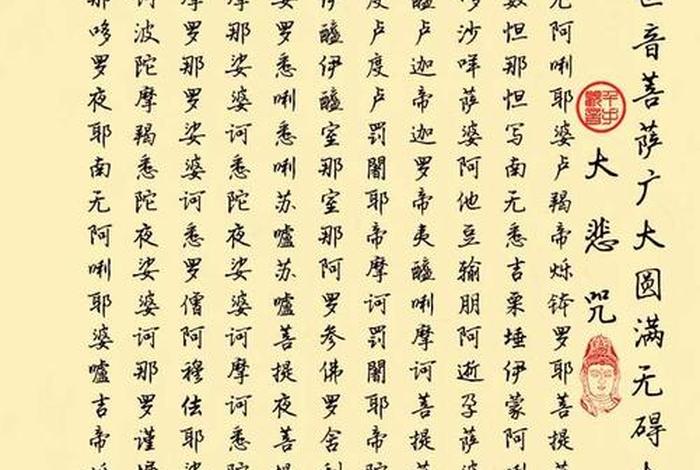 世音菩萨广大圆满无碍大
千手观音
大悲咒
无阿唎耶婆卢羯帝烁钵罗耶菩提
数怛那怛写南无悉吉栗埵伊蒙阿唎
哆沙咩萨婆阿他豆输朋阿逝孕萨婆
醯卢迦帝迦罗帝夷醯唎摩诃菩提萨
度卢度卢罚闍耶帝摩诃罚闍耶帝
伊醯伊醯室那室那阿罗参佛罗舍利
娑罗悉唎悉唎苏嚧苏嚧菩提夜菩提
摩那娑婆诃悉陀夜娑婆诃摩诃悉陀
摩罗那罗娑婆诃悉罗僧阿穆佉耶娑
诃波陀摩羯悉陀夜娑婆诃那罗谨墀
那哆罗夜耶南无阿唎耶婆嚧吉帝